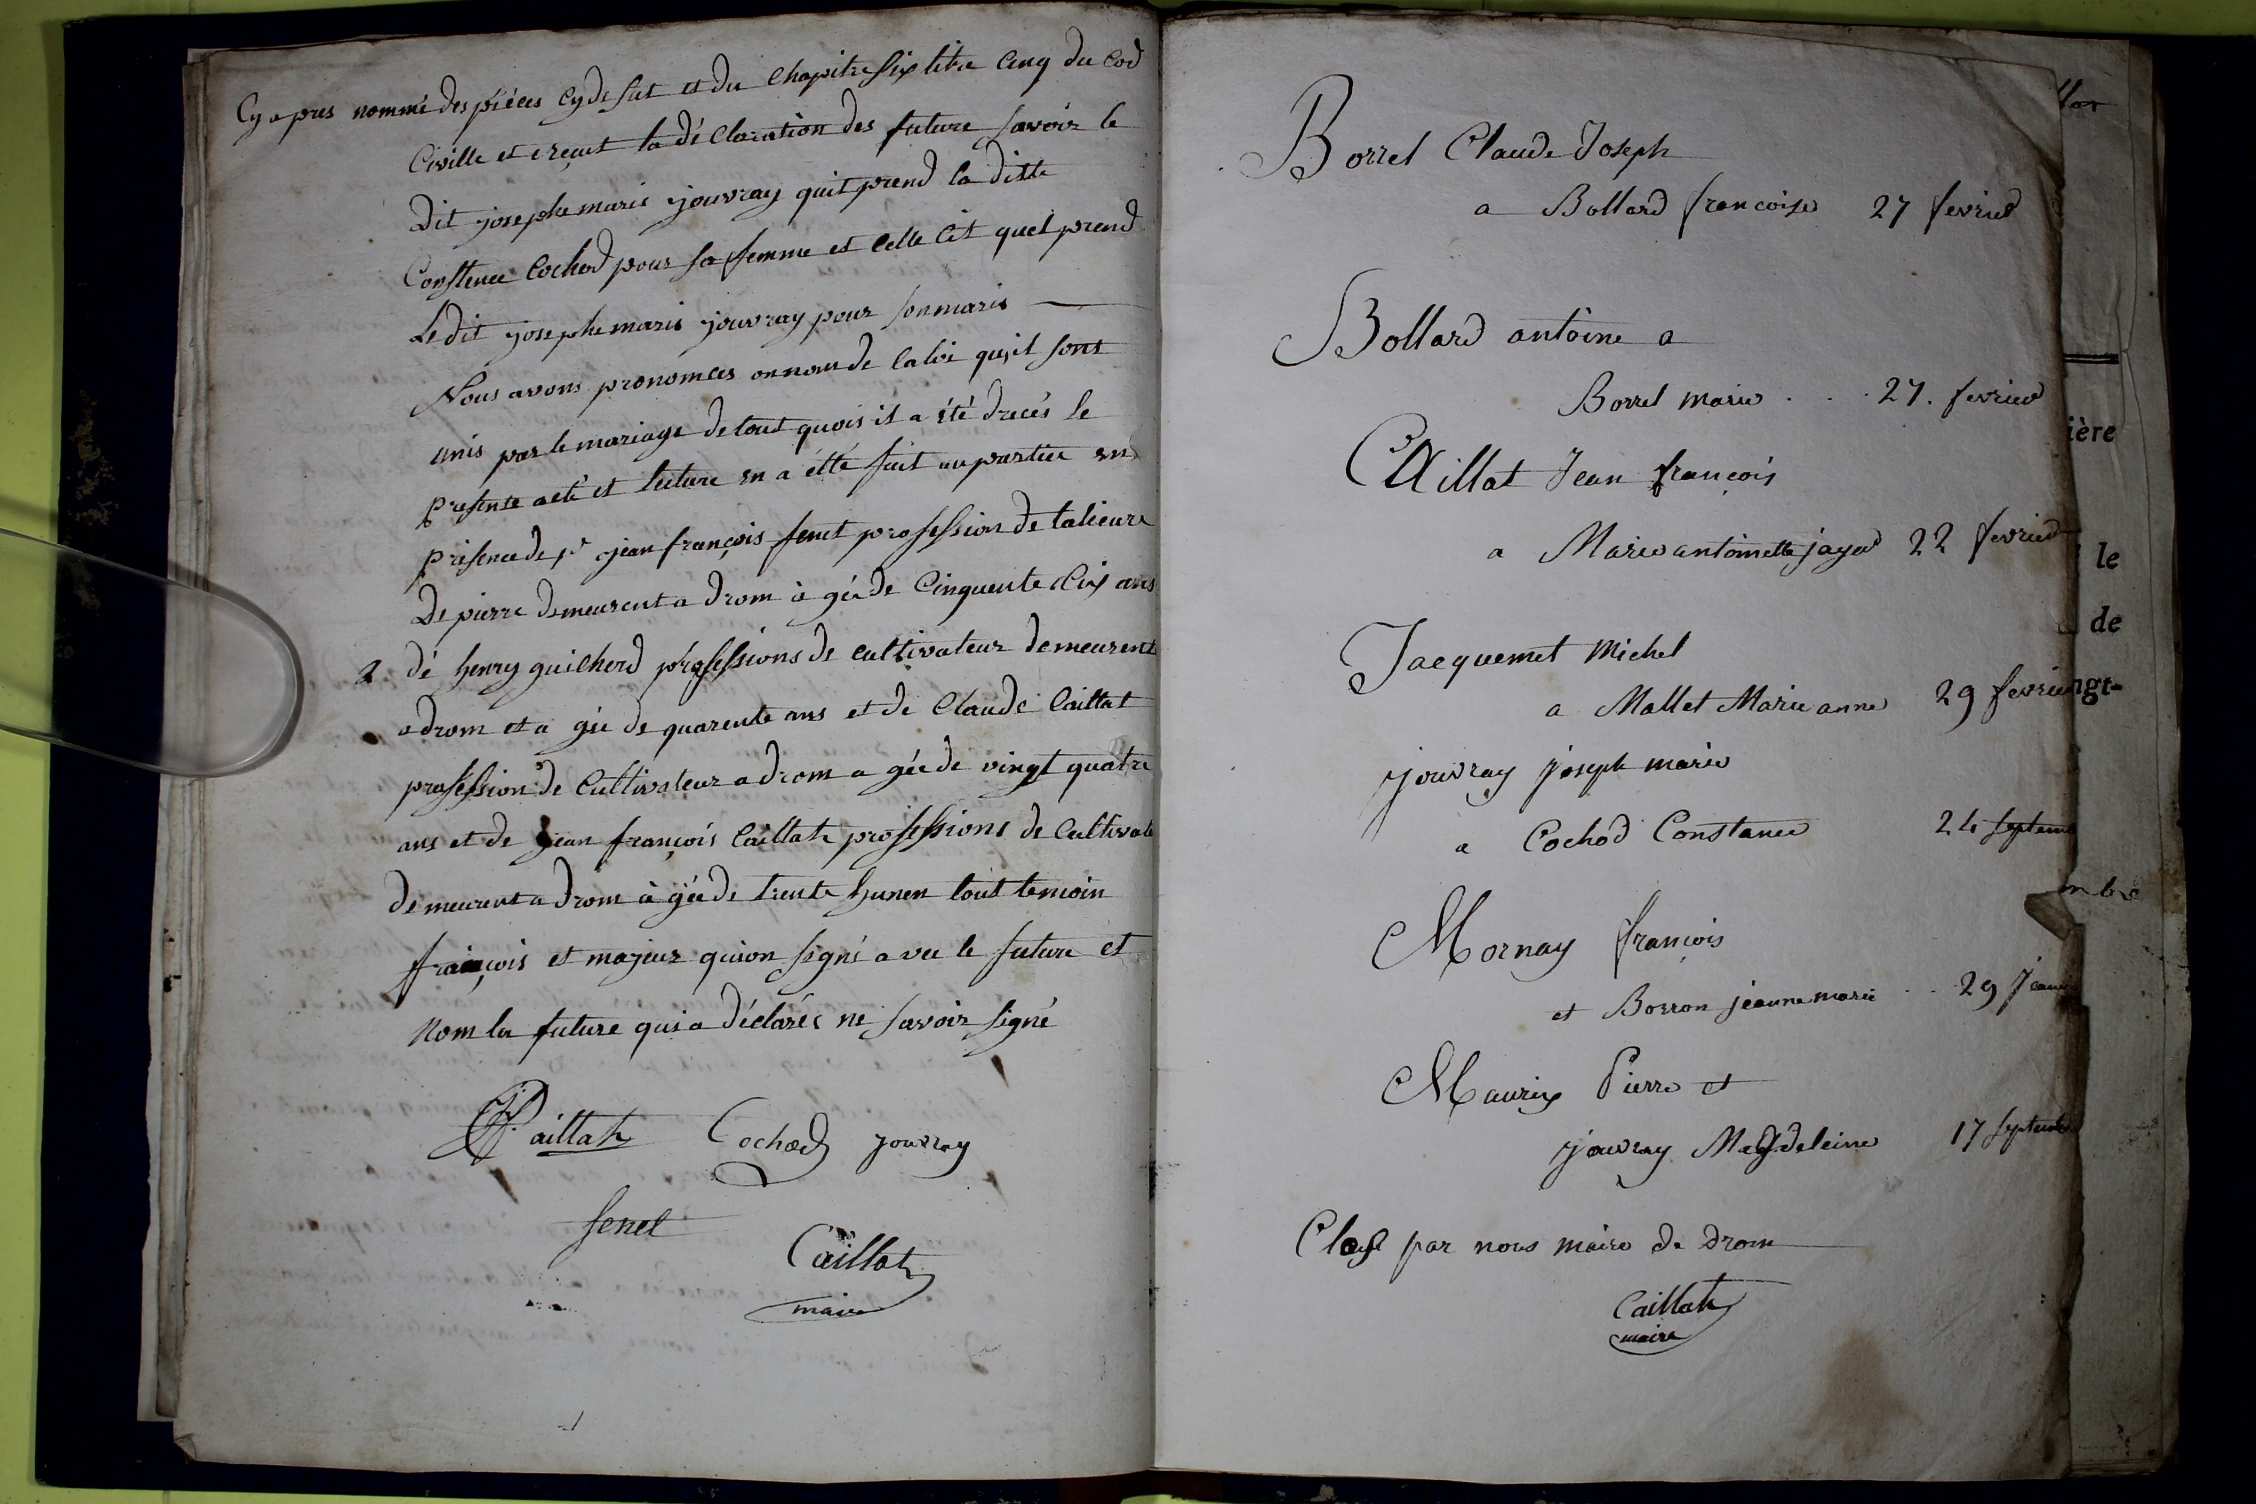 Cy apres nommé des piéces cy de sut et du chapitre six titre cinq du cod
Civille et reçut la dé claration des future savoir le
dit josephe marie jouvray quit prend la ditte
Constence Cochod pour sa femme et celle cit quel prend
Le dit josephe marie jouvray pour son maris
Nous avons pronomces on nom de la loi qu,il sont
unis par le mariage de tout quois il a été drecés le
presente acté et lecture en a étté fait au partiee en
présence de jean françois fenet profession de talieure
de pierre demeurent a drom à gée de Cinquente dix ans
2 dé henry guicherd professions de cultivateur demeurent
a drom et a gée de quarente ans et de Claude Caillat
profession de Cultivateur a drom a gée de vingt quatre
ans et de jean françois Caillat professions de Cultivate
demeurent a drom à gée de trente hunen tout temoin
françois et majeur quion signé a vec le future et
Nom la future qui a déclarée ne savoir signé
Caillat Cochod jouvray
fenet
Caillat
maire
Borrel Claude Joseph
a Bollard francoise 27 fevrier
Bollard antoine a
Borrel marie . . . 27. fevrier
CAillat Jean françois
a Marie antoinette jayer 22 fevrier
Jacquemet Michel
a Mallet Marie anne 29 fevrie
jouvray joseph marie
a Cochod Constance 24 septem
Mornay françois
et Borron jeanne marie . . 29 Janvi
Maurix Pierre et
jouvray Magdeleine 17 septemb
Clos par nous maire de drom
Caillat
maire
ière
le
de
ngt-
mbre